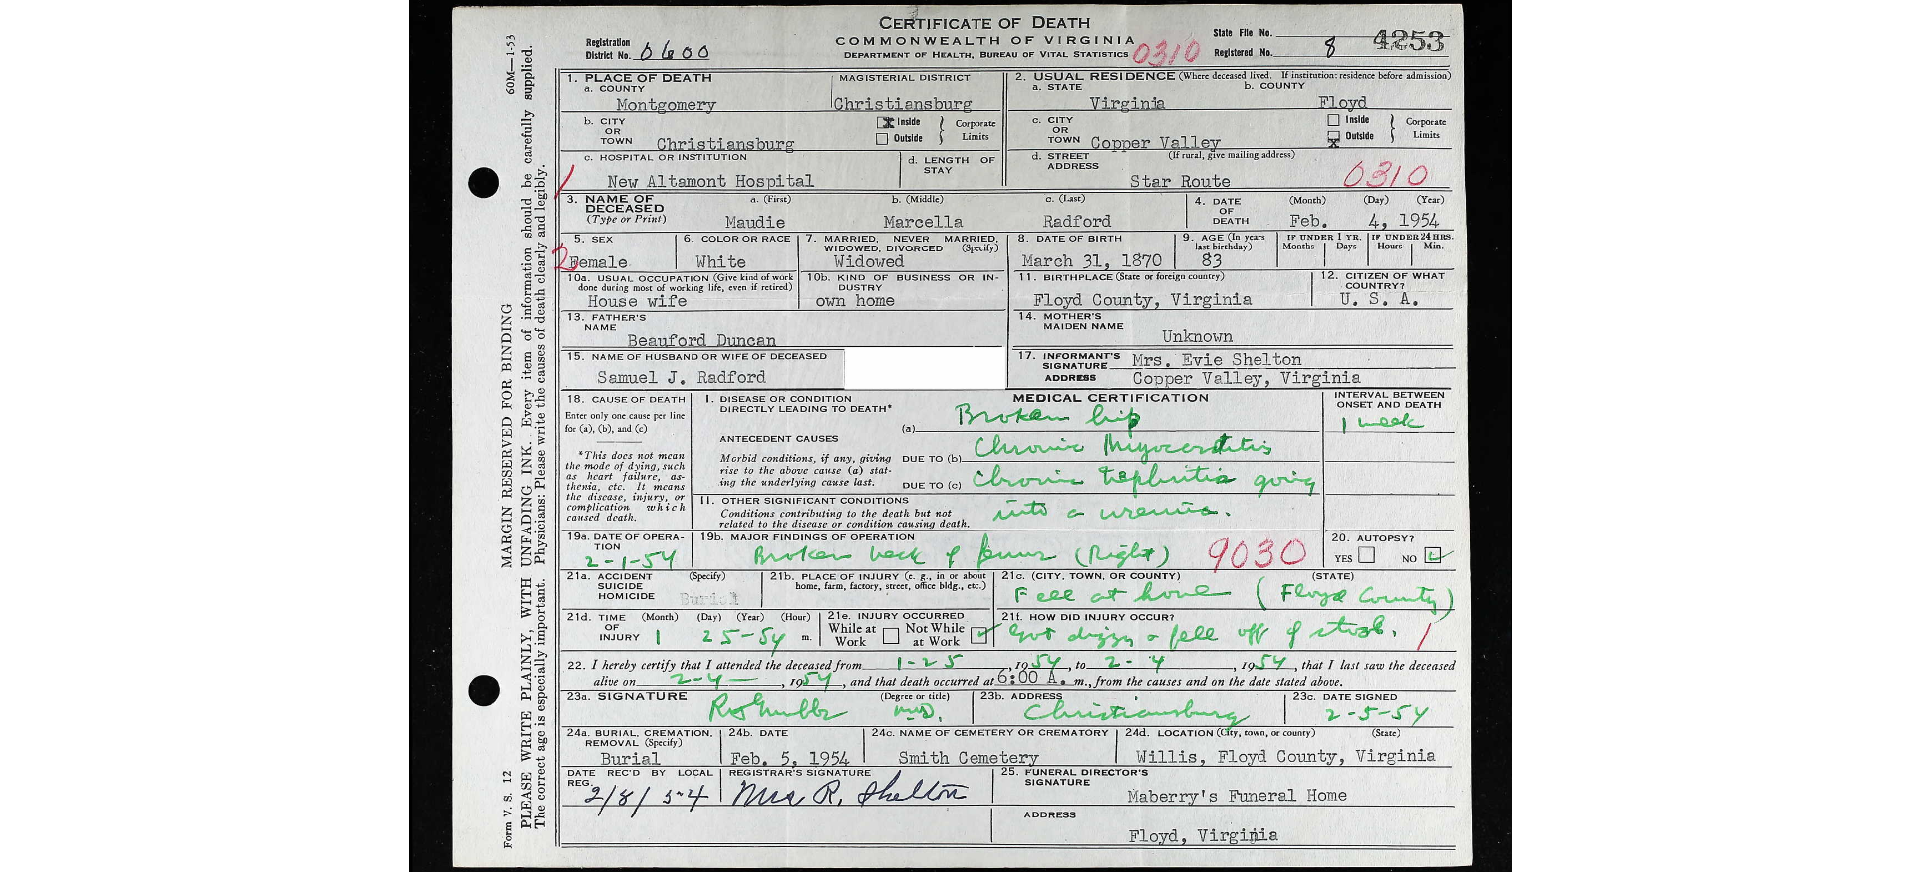 CERTIFICATE OF DEATH
COMMONWEALTH OF VIRGINIA
DEPARTMENT OF HEALTH, BUREAU OF VITAL STATISTICS 0310
Registration District No. 0600
State File No. 4253
Registered No. 8
60M—1-53
MARGIN RESERVED FOR BINDING
PLEASE WRITE PLAINLY, WITH UNFADING INK. Every item of information should be carefully supplied.
The correct age is especially important. Physicians: Please write the causes of death clearly and legibly.
Form V. S. 12
1. PLACE OF DEATH
a. COUNTY Montgomery
MAGISTERIAL DISTRICT Christiansburg
b. CITY OR TOWN Christiansburg
Inside Outside } Corporate Limits
c. HOSPITAL OR INSTITUTION New Altamont Hospital
d. LENGTH OF STAY
1
2. USUAL RESIDENCE (Where deceased lived. If institution: residence before admission)
a. STATE Virginia
b. COUNTY Floyd
c. CITY OR TOWN Copper Valley
Inside Outside } Corporate Limits
d. STREET ADDRESS (If rural, give mailing address) Star Route
0310
3. NAME OF DECEASED (Type or Print)
a. (First) Maudie
b. (Middle) Marcella
c. (Last) Radford
4. DATE OF DEATH (Month) (Day) (Year) Feb. 4, 1954
2
5. SEX Female
6. COLOR OR RACE White
7. MARRIED, NEVER MARRIED, WIDOWED, DIVORCED (Specify) Widowed
8. DATE OF BIRTH March 31, 1870
9. AGE (In years last birthday) 83
IF UNDER 1 YR. Months Days
IF UNDER 24 HRS. Hours Min.
10a. USUAL OCCUPATION (Give kind of work done during most of working life, even if retired) House wife
10b. KIND OF BUSINESS OR INDUSTRY own home
11. BIRTHPLACE (State or foreign country) Floyd County, Virginia
12. CITIZEN OF WHAT COUNTRY? U. S. A.
13. FATHER'S NAME Beauford Duncan
14. MOTHER'S MAIDEN NAME Unknown
15. NAME OF HUSBAND OR WIFE OF DECEASED Samuel J. Radford
17. INFORMANT'S SIGNATURE Mrs. Evie Shelton
ADDRESS Copper Valley, Virginia
18. CAUSE OF DEATH
Enter only one cause per line for (a), (b), and (c)
*This does not mean the mode of dying, such as heart failure, asthenia, etc. It means the disease, injury, or complication which caused death.
MEDICAL CERTIFICATION
INTERVAL BETWEEN ONSET AND DEATH
I. DISEASE OR CONDITION DIRECTLY LEADING TO DEATH* (a) Broken hip 1 week
ANTECEDENT CAUSES
Morbid conditions, if any, giving rise to the above cause (a) stating the underlying cause last.
DUE TO (b) Chronic Myocarditis
DUE TO (c) Chronic Nephritis going
II. OTHER SIGNIFICANT CONDITIONS into a uremia.
Conditions contributing to the death but not related to the disease or condition causing death.
19a. DATE OF OPERATION 2-1-54
19b. MAJOR FINDINGS OF OPERATION Broken neck of femur (Right)
9030
20. AUTOPSY? YES NO
21a. ACCIDENT SUICIDE HOMICIDE (Specify) Burial
21b. PLACE OF INJURY (e. g., in or about home, farm, factory, street, office bldg., etc.)
21c. (CITY, TOWN, OR COUNTY) (STATE) Fell at home (Floyd County)
21d. TIME OF INJURY (Month) (Day) (Year) (Hour) 1 25-54 m.
21e. INJURY OCCURRED While at Work Not While at Work
21f. HOW DID INJURY OCCUR? Got dizzy & fell off of stool. 1
22. I hereby certify that I attended the deceased from 1-25, 1954, to 2-4, 1954, that I last saw the deceased
alive on 2-4, 1954, and that death occurred at 6:00 A. m., from the causes and on the date stated above.
23a. SIGNATURE (Degree or title) M.D.
23b. ADDRESS Christiansburg
23c. DATE SIGNED 2-5-54
24a. BURIAL, CREMATION, REMOVAL (Specify) Burial
24b. DATE Feb. 5, 1954
24c. NAME OF CEMETERY OR CREMATORY Smith Cemetery
24d. LOCATION (City, town, or county) (State) Willis, Floyd County, Virginia
DATE REC'D BY LOCAL REG. 2/8/54
REGISTRAR'S SIGNATURE Mrs R. Shelton
25. FUNERAL DIRECTOR'S SIGNATURE Maberry's Funeral Home
ADDRESS Floyd, Virginia